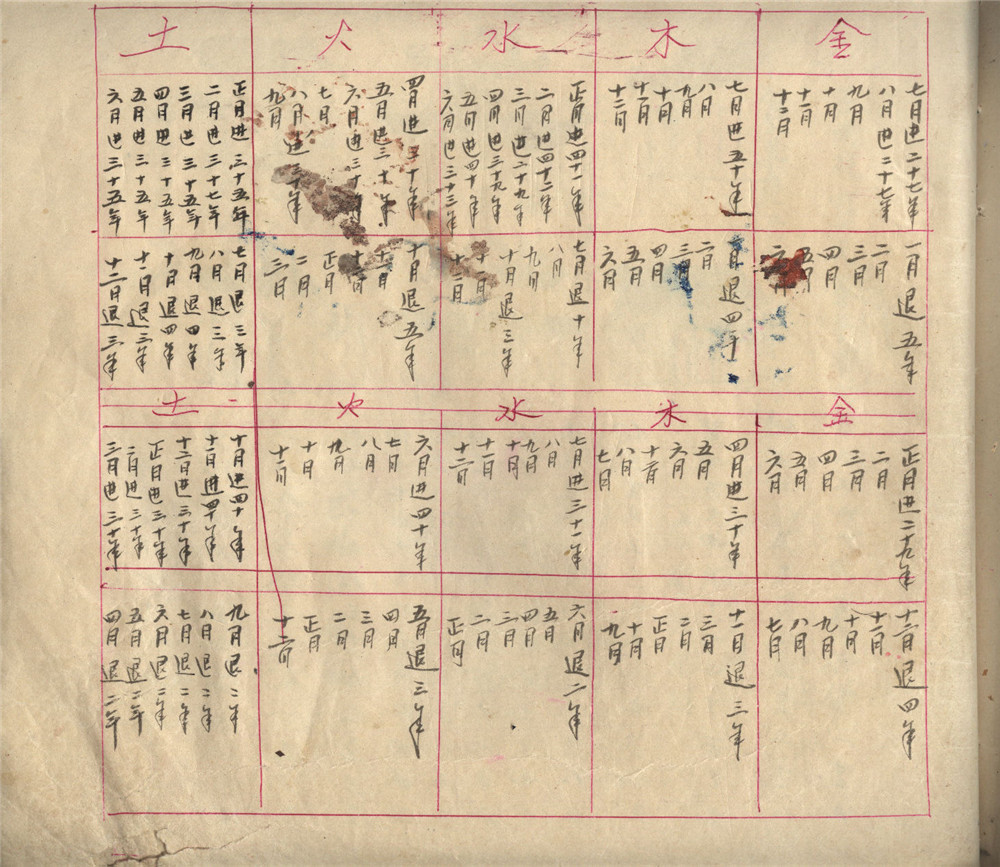 金
木
水
火
土
七月进二十七年
八月进二十七年
九月
十月
十一月
十二月
七月进五十年
八月
九月
十月
十一月
十二月
正月进四十一年
二月进四十二年
三月进二十九年
四月进三十九年
五月进四十年
六月进三十三年
四月进三十年
五月进三十年
六月进三十年
七月
八月进三十年
九月
正月进三十五年
二月进三十七年
三月进三十五年
四月进三十五年
五月进三十五年
六月进三十五年
一月退五年
二月
三月
四月
五月
六月
退四年
二月
三月
四月
五月
六月
七月退十年
八月
九月
十月退三年
十一月
十二月
十月退五年
十一月
十二月
正月
二月
三月
七月退三年
八月退三年
九月退四年
十月退四年
十一月退三年
十二月退三年
金
木
水
火
土
正月进二十九年
二月
三月
四月
五月
六月
四月进三十年
五月
六月
十二月
八月
七月
七月进三十一年
八月
九月
十月
十一月
十二月
六月进四十年
七月
八月
九月
十月
十一月
十月进四十年
十一月进四十年
十二月进三十年
正月进三十年
二月进三十年
三月进三十年
十二月退四年
十一月
十月
九月
八月
七月
十一月退三年
三月
二月
正月
十月
九月
六月退二年
五月
四月
三月
二月
正月
五月退三年
四月
三月
二月
正月
十二月
九月退二年
八月退二年
七月退二年
六月退二年
五月退二年
四月退二年